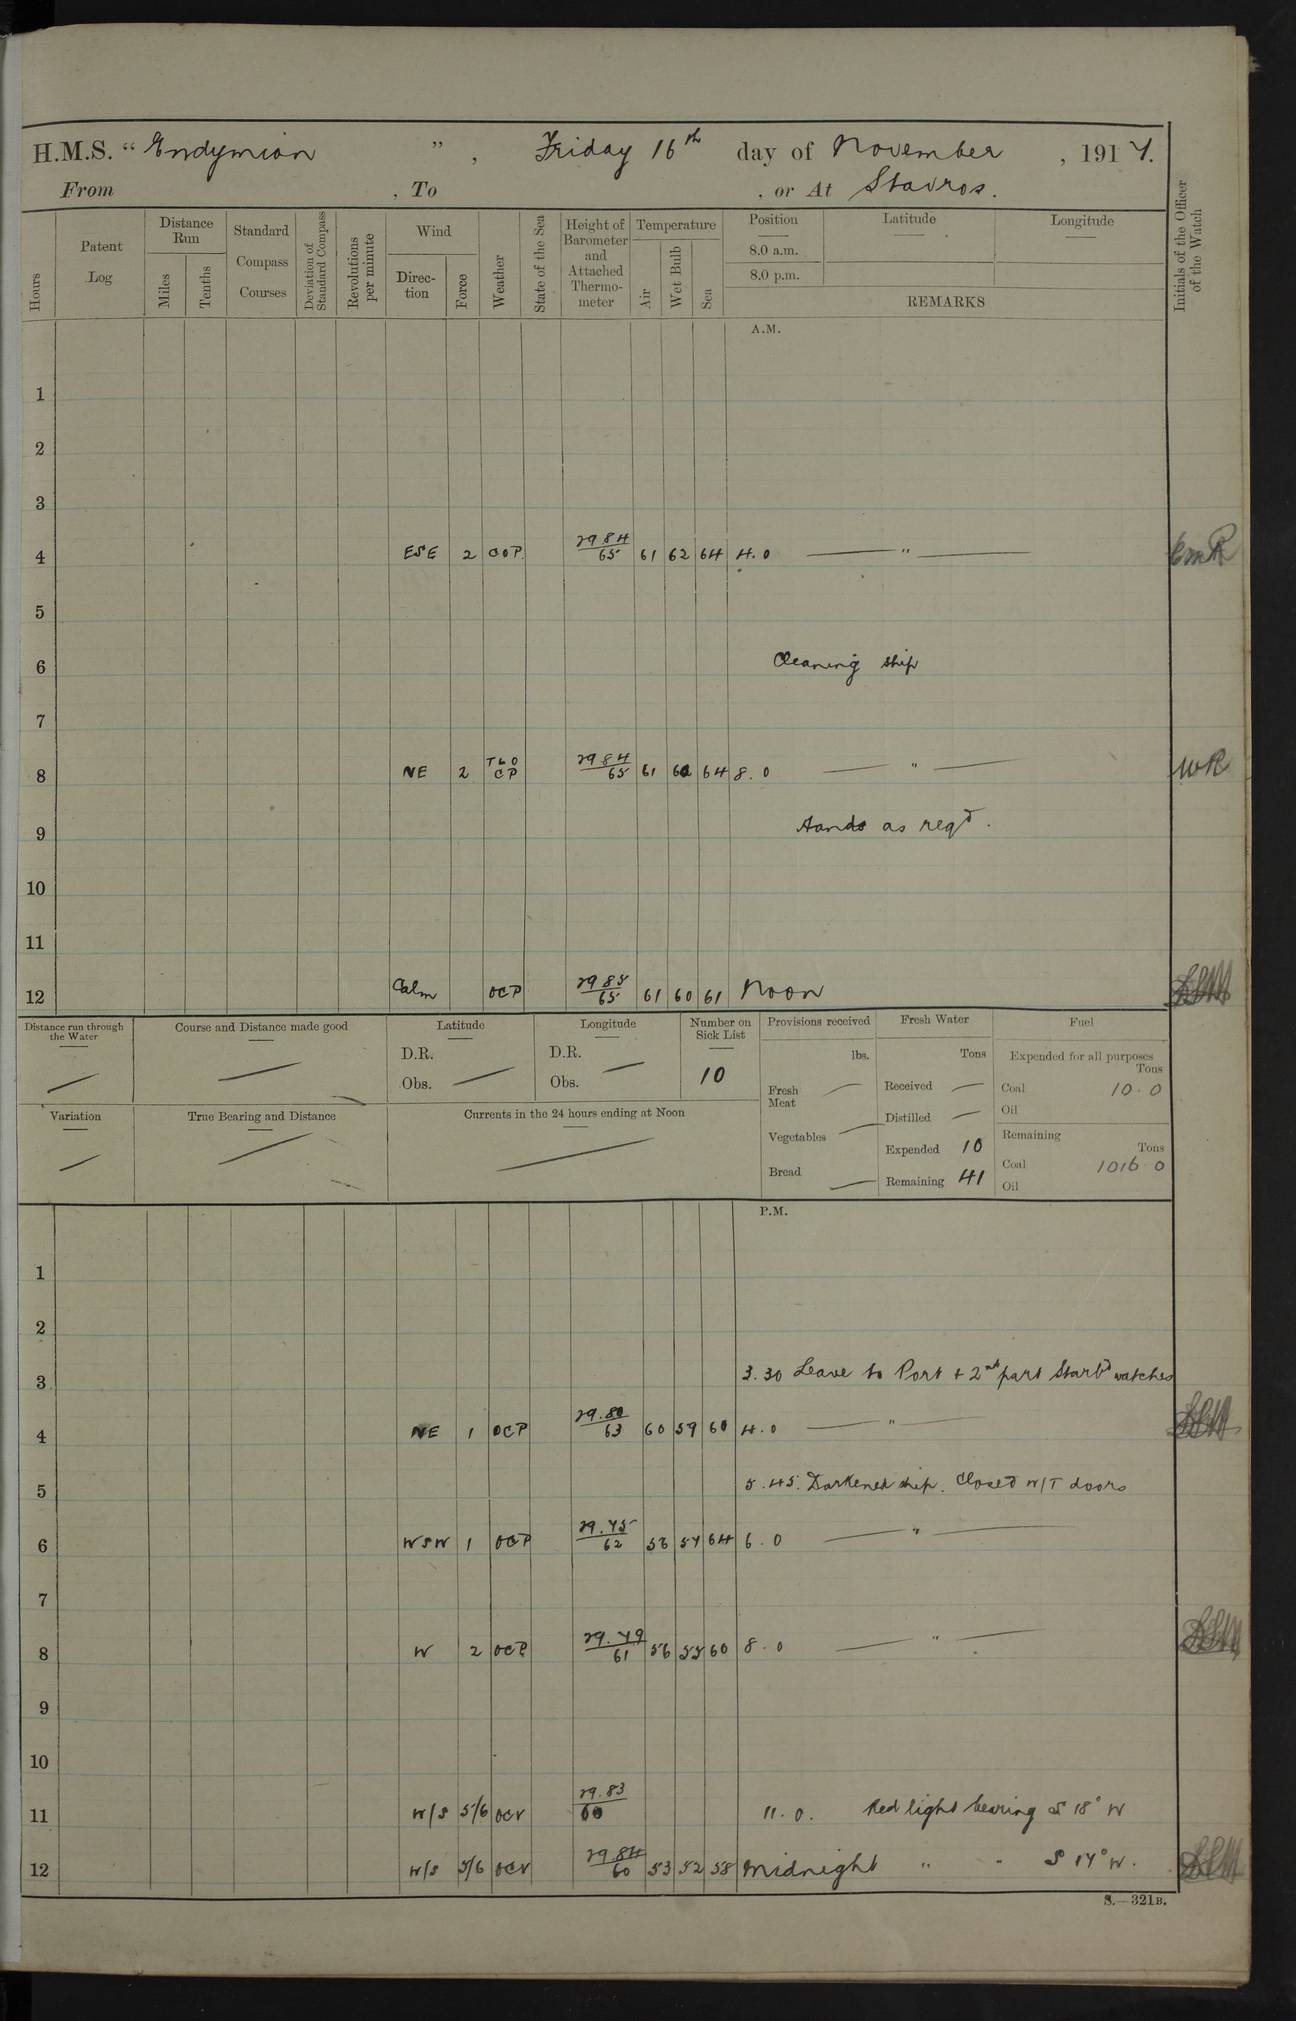 H.M.S. “ Endymion ” , Friday 16th day of November , 1917.
From , To , or At Stavros.
Hours
Patent Log
Distance Run
Miles
Tenths
Standard Compass Courses
Deviation of Standard Compass
Revolutions per minute
Wind
Direction
Force
Weather
State of the Sea
Height of Barometer and Attached Thermometer
Temperature
Air
Wet Bulb
Sea
Position
8.0 a.m.
8.0 p.m.
Latitude
Longitude
REMARKS
Initials of the Officer of the Watch
A.M.
1
2
3
4 ESE 2 COP 29 84/65 61 62 64 4.0 — " —
5
6 Cleaning ship
7
8 NE 2 TLO CP 29 84/65 61 60 64 8.0 — " — WR
9 Hands as reqd.
10
11
12 Calm OCP 29 85/65 61 60 61 Noon
Distance run through the Water
Course and Distance made good
Latitude
D.R.
Obs.
Longitude
D.R.
Obs.
Number on Sick List
10
Provisions received
lbs.
Fresh Meat
Vegetables
Bread
Fresh Water
Tons
Received
Distilled
Expended 10
Remaining 41
Fuel
Expended for all purposes
Tons
Coal 10.0
Oil
Remaining
Tons
Coal 1016.0
Oil
Variation
True Bearing and Distance
Currents in the 24 hours ending at Noon
P.M.
1
2
3 3.30 Leave to Port + 2nd part Starbd watches
4 NE 1 OCP 29.80/63 60 59 60 4.0 — " —
5 5.45. Darkened ship. Closed W/T doors
6 WSW 1 OCP 29.75/62 58 57 64 6.0 — " —
7
8 W 2 OCP 29.79/61 56 55 60 8.0 — " —
9
10
11 W/S 5/6 OCV 29.83/60 11.0. Red light bearing S 18° W
12 W/S 5/6 OCV 29.84/60 53 52 58 Midnight " " S 17° W.
S.—321B.